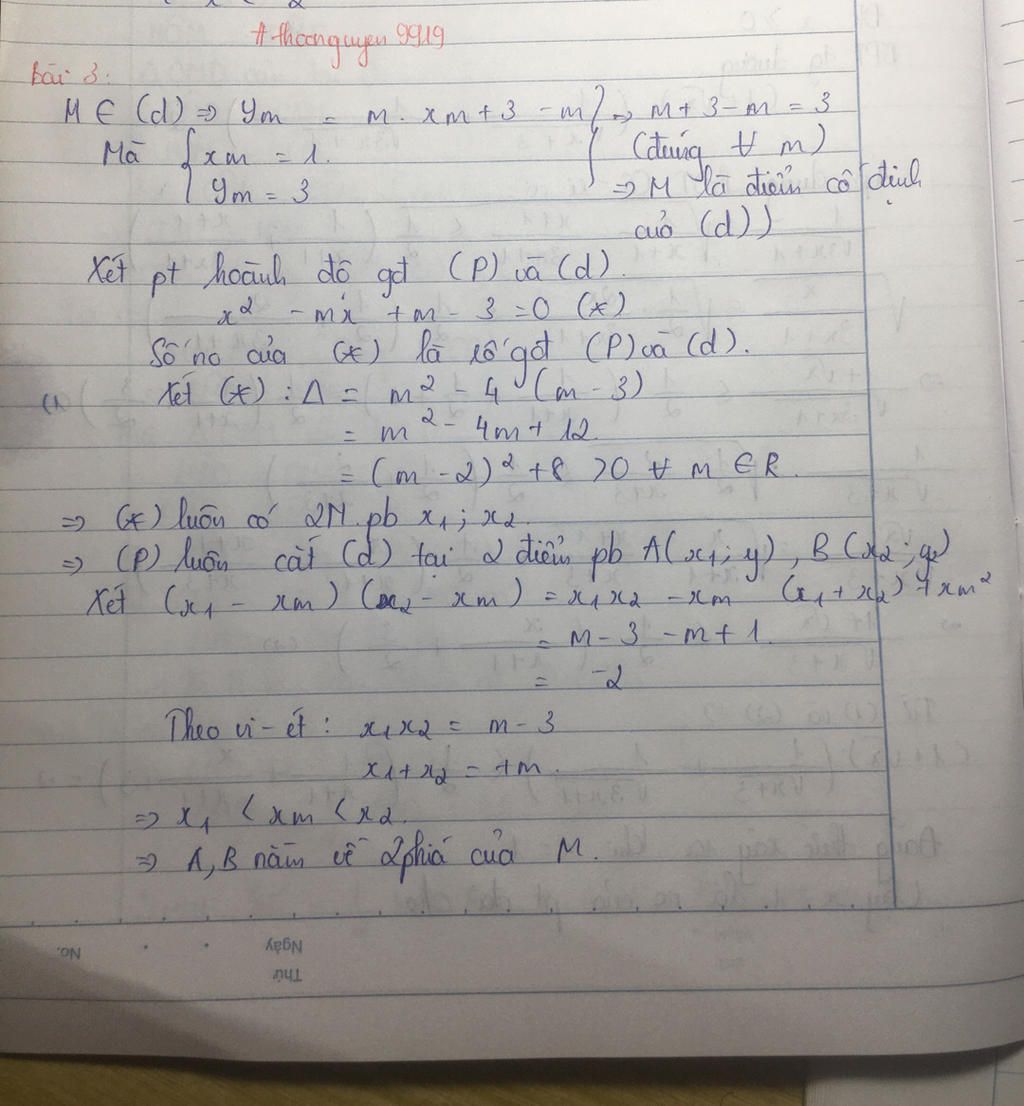 #thoonguyen 9919
bài 3:
M ∈ (d) => ym = m. xm + 3 - m } => m + 3 - m = 3
Mà { xm = 1. (đúng ∀ m)
ym = 3 => M là điểm cố định
của (d))
Xét pt hoành độ gđ (P) và (d).
x² - mx + m - 3 = 0 (*)
Số no của (*) là số gđ (P) và (d).
Xét (*) : Δ = m² - 4 (m - 3)
= m² - 4m + 12
= (m - 2)² + 8 > 0 ∀ m ∈ R.
=> (*) luôn có 2N pb x1 ; x2
=> (P) luôn cắt (d) tại 2 điểm pb A(x1 ; y), B(x2 ; y2)
Xét (x1 - xm) (x2 - xm) = x1x2 - xm (x1 + x2) + xm²
= m - 3 - m + 1.
= -2
Theo vi-ét : x1x2 = m - 3
x1 + x2 = +m.
=> x1 < xm < x2.
=> A, B nằm về 2 phiá của M.
No.
Ngày
Thứ